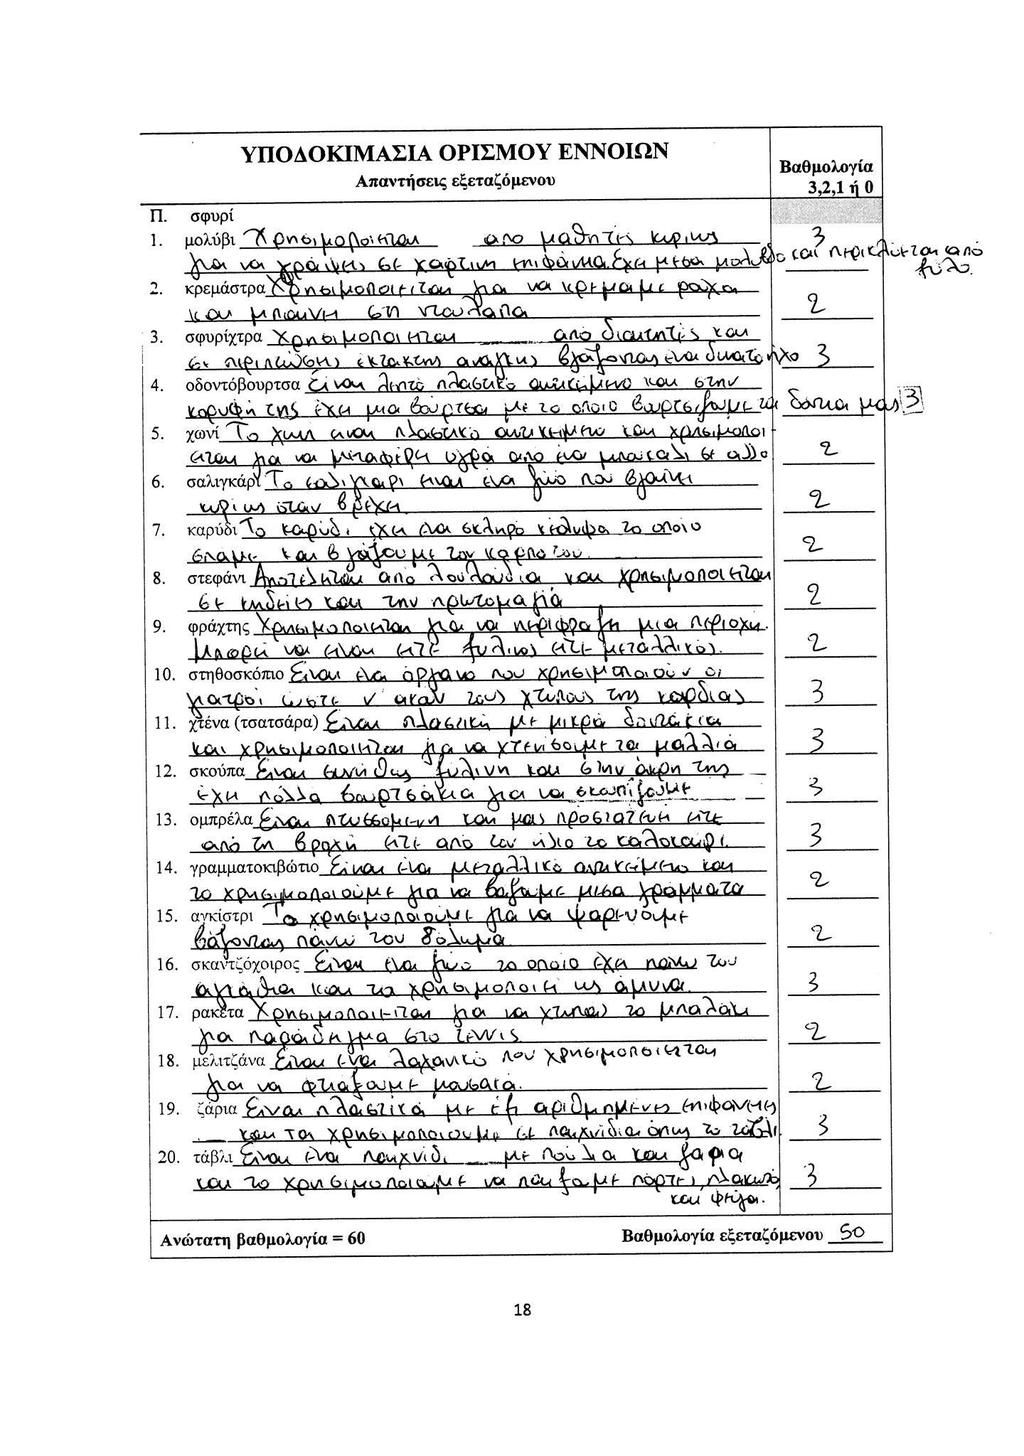 ΥΠΟΔΟΚΙΜΑΣΙΑ ΟΡΙΣΜΟΥ ΕΝΝΟΙΩΝ
Απαντήσεις εξεταζόμενου
Βαθμολογία
3,2,1 ή 0
Π. σφυρί
1. μολύβι Χρησιμοποιείται από μαθητές κυρίως 3
για να γράψεις σε χάρτινη επιφάνεια. Έχει μέσα μολύβδο και περικλύεται από
ξύλο.
2. κρεμάστρα Χρησιμοποιείται για να κρεμάμε ρούχα
και μπαίνει στη ντουλάπα 2
3. σφυρίχτρα Χρησιμοποιείται από διαιτητές και
σε περιπτώσεις έκτακτης ανάγκης βγάζοντας ένα δυνατό ήχο 3
4. οδοντόβουρτσα είναι λεπτό πλαστικό αντικείμενο και στην
κορυφή της έχει μια βούρτσα με το οποίο βουρτσίζουμε τα δόντια μας 3
5. χωνί Το χωνί είναι πλαστικό αντικείμενο και χρησιμοποι
είται για να μεταφέρει υγρά από ένα μπουκάλι σε άλλο 2
6. σαλιγκάρι Το σαλιγκάρι είναι ένα ζώο που βγαίνει
κυρίως όταν βρέχει. 2
7. καρύδι Το καρύδι έχει ένα σκληρό κέλυφο το οποίο
σπάμε και βγάζουμε τον καρπό του. 2
8. στεφάνι Αποτελείται από λουλούδια και χρησιμοποιείται
σε κηδείες και την πρωτομαγιά 2
9. φράχτης Χρησιμοποιείται για να περιφράξει μια περιοχή.
Μπορεί να είναι είτε ξύλινος είτε μεταλλικός. 2
10. στηθοσκόπιο Είναι ένα όργανο που χρησιμοποιούν οι
γιατροί ώστε ν' ακούν τους χτύπους της καρδιάς 3
11. χτένα (τσατσάρα) Είναι πλαστική με μικρά δοντάκια
και χρησιμοποιείται για να χτενίσουμε τα μαλλιά 3
12. σκούπα Είναι συνήθως ξύλινη και στην άκρη της
έχει πολλά βουρτσάκια για να σκουπίζουμε 3
13. ομπρέλα Είναι πτυσσόμενη και μας προστατεύει είτε
από τη βροχή είτε από τον ήλιο το καλοκαίρι. 3
14. γραμματοκιβώτιο Είναι ένα μεταλλικό αντικείμενο και
το χρησιμοποιούμε για να βάζουμε μέσα γράμματα 2
15. αγκίστρι Το χρησιμοποιούμε για να ψαρεύουμε
βάζοντας πάνω του δόλωμα 2
16. σκαντζόχοιρος Είναι ένα ζώο το οποίο έχει πάνω του
αγκάθια και τα χρησιμοποιεί ως άμυνα. 3
17. ρακέτα Χρησιμοποιείται για να χτυπάς το μπαλάκι
για παράδειγμα στο τέννις 2
18. μελιτζάνα Είναι ένα λαχανικό που χρησιμοποιείται
για να φτιάξουμε μουσακά. 2
19. ζάρια Είναι πλαστικά με έξι αριθμημένες επιφάνειες
και τα χρησιμοποιούμε σε παιχνίδια όπως το τάβλι 3
20. τάβλι Είναι ένα παιχνίδι με πούλια και ζάρια
και το χρησιμοποιούμε να παίξουμε πόρτες, πλακωτό 3
και φεύγα.
Ανώτατη βαθμολογία = 60 Βαθμολογία εξεταζόμενου 50
18